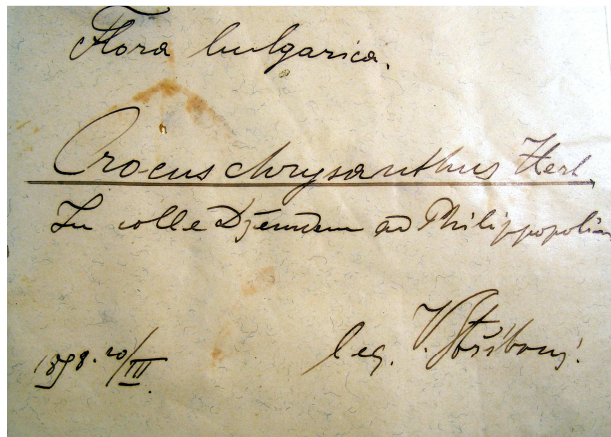 Flora bulgarica.
Crocus chrysanthus Herb
In colle Džendem ad Philippopolin
1898. 20/III.
leg. V. Stříbrný.